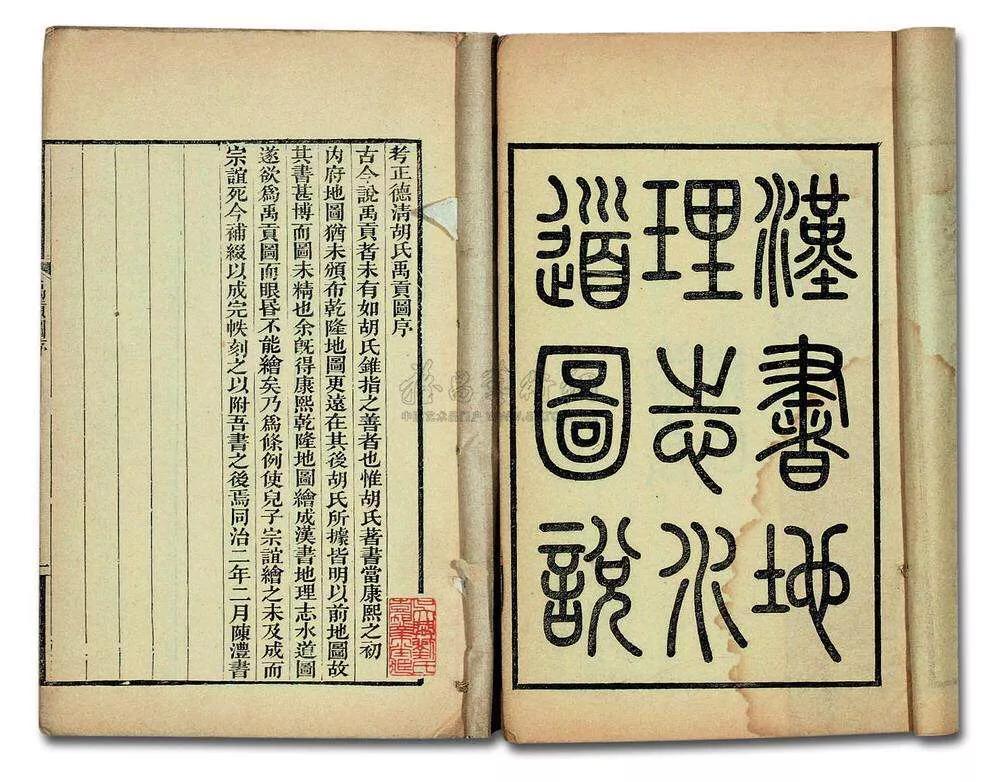 漢書地
理志水
道圖說
考正德清胡氏禹貢圖序
古今說禹貢者未有如胡氏錐指之善者也惟胡氏著書當康熙之初
內府地圖猶未頒布乾隆地圖更遠在其後胡氏所據皆明以前地圖故
其書甚博而圖未精也余旣得康熙乾隆地圖繪成漢書地理志水道圖
遂欲爲禹貢圖而眼昏不能繪矣乃爲條例使兒子宗誼繪之未及成而
宗誼死今補綴以成完帙刻之以附吾書之後焉同治二年二月陳澧書
吳興劉氏